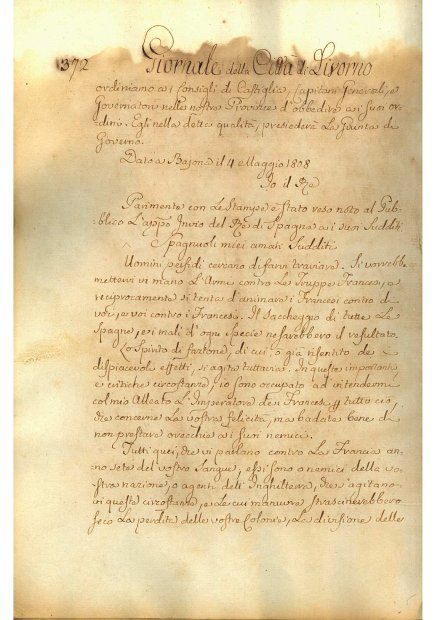 372
Giornale della Città di Livorno
ordiniamo a i Consigli di Castiglia, Capitani Generali, e
Governatori nelle nostre Provincie d'obbedire a i suoi or-
dini. Egli nella detta qualità, presiederà La Giunta di
Governo.
Dato a Bajona il 4 Maggio 1808
Io il Re
Parimente con Le Stampe è stato reso noto al Pub-
blico L'app.o Invio del Re di Spagna a i suoi Sudditi
Spagnuoli miei amati Sudditi
Uomini perfidi cercano di farvi traviare. Si vorrebbe
mettervi in mano L'Arme contro Le Truppe Francesi, e
reciprocamente si tenta d'animare i Francesi contro di
voi, e voi contro i Francesi. Il saccheggio di tutte Le
Spagne, e i mali d'ogni specie ne sarebbero il resultato.
Lo Spirito di fazione, di cui, o già risentito de i
dispiacevoli effetti, si agita tuttavia. In queste importanti
e critiche circostanze, io sono occupato ad intendermi
col mio Alleato L'Imperatore de i Francesi tutto ciò,
che concerne La vostra felicità, ma badate bene di
non prestare orecchia a i suoi nemici.
Tutti quei, che vi parlano contro La Francia an-
no sete del vostro Sangue, essi sono o nemici della vo-
stra nazione, o agenti dell'Inghilterra, che s'agitano
in queste circostanze, e Le cui manuvre strascinerebbero
seco La perdita delle vostre Colonie, La divisione delle